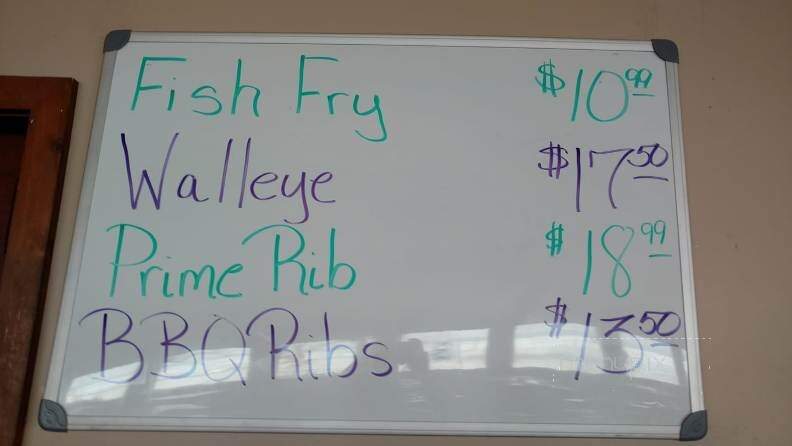 Fish Fry $10.99
Walleye $17.50
Prime Rib $18.99
BBQ Ribs $13.50